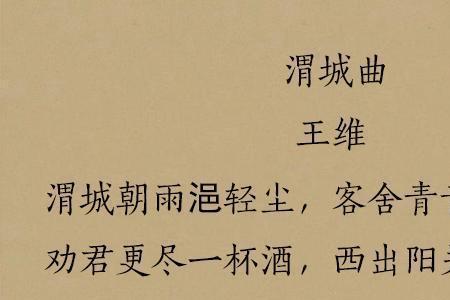 渭城曲
王维
渭城朝雨浥轻尘，客舍青
劝君更尽一杯酒，西出阳